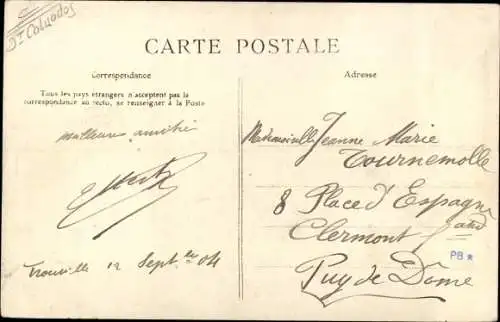 Dt Calvados
CARTE POSTALE
Correspondance
Tous les pays étrangers n'acceptent pas la
correspondance au recto, se renseigner à la Poste
Meilleures amitiés
Trouville 12 Septbre 04
Adresse
Mademoiselle Jeanne Marie
Tournemolle
8 Place d'Espagne
Clermont Fand
Puy de Dome
PB *